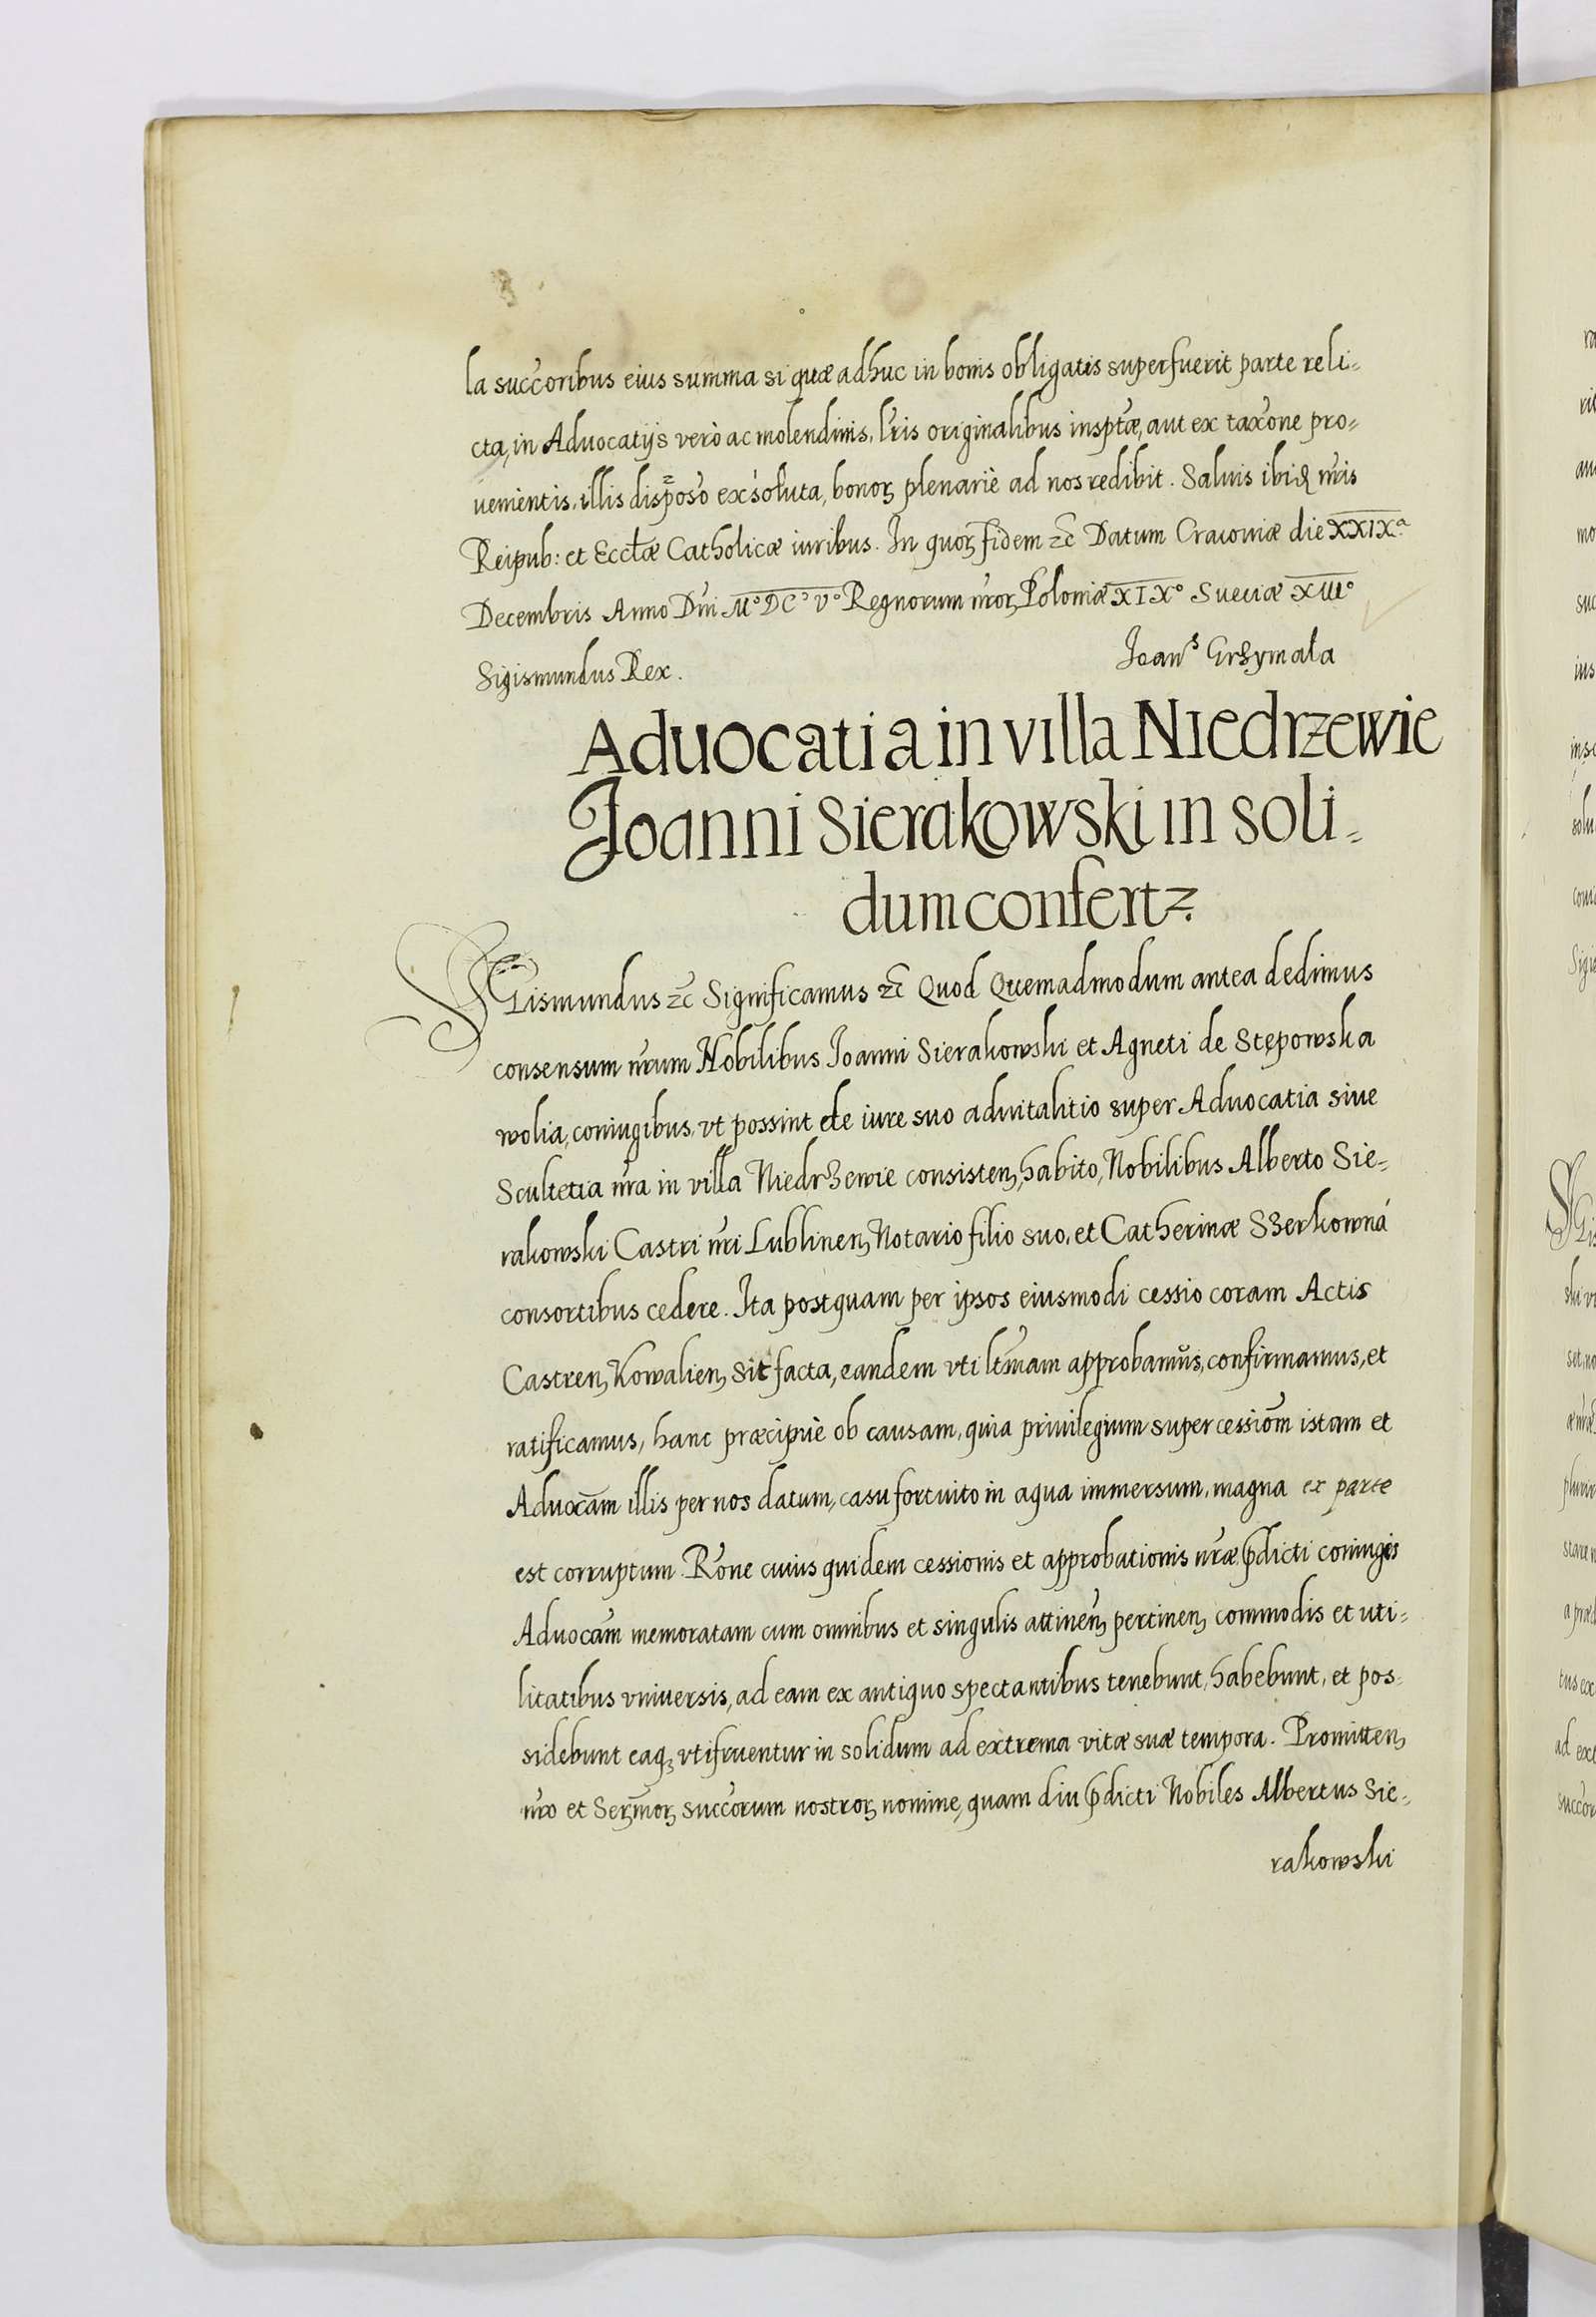 la succ̃oribus eius summa si quæ adhuc in bonis obligatis superfuerit parte reli-
cta, in Aduocatijs verò ac molendinis, l̃ris originalibus insptæ, aut ex tax̃one pro-
uenientis, illis disp̃oso exsoluta, bonoꝝ plenariè ad nos redibit. Saluis ibiꝗ nr̃is
Reipub: et Eccłæ Catholicæ iuribus. In quoꝝ fidem ꝛc̃ Datum Cracouiæ die XXIXᵃ
Decembris Anno Dñi Mº DCº Vº Regnorum nr̃oꝝ Poloniæ XIXº Sueciæ XIIIº
Sigismundus Rex. Joanˢ Grzymala
Aduocatia in villa Niedrzewie
Joanni Sierakowski in soli-
dum confertꝛ.
SGIismundus ꝛc̃ Significamus ꝛc̃ Quod Quemadmodum antea dedimus
consensum nr̃um Nobilibus Joanni Sierakowski et Agneti de Stępowska
wolia, coniugibus, vt possint de iure suo aduitalitio super Aduocatia siue
Scultetia nr̃a in villa Niedrzewie consistenꝫ, habito, Nobilibus Alberto Sie-
rakowski Castri nr̃i Lublinenꝫ Notario filio suo, et Catherinæ Szerkowná
consortibus cedere. Ita postquam per ipsos eiusmodi cessio coram Actis
Castrenꝫ Kowalienꝫ sit facta, eandem vti ltm̃am approbamus, confirmamus, et
ratificamus, hanc præcipuè ob causam, quia priuilegium super cessiom̃ istam et
Aduoca̅m illis per nos datum, casu fortuito in aqua immersum, magna ex parte
est corruptum. Rõne cuius quidem cessionis et approbationis nr̃æ p̃dicti coniuges
Aduocãm memoratam cum omnibus et singulis attineñꝫ pertinenꝫ commodis et uti-
litatibus vniuersis, ad eam ex antiquo spectantibus tenebunt, habebunt, et pos-
sidebunt eaqꝫ vtifruentur in solidum ad extrema vitæ suæ tempora. Promittenꝫ
nr̃o et Serm̃oꝝ succ̃orum nostroꝝ nomine, quam diu p̃dicti Nobiles Albertus Sie-
rakowski